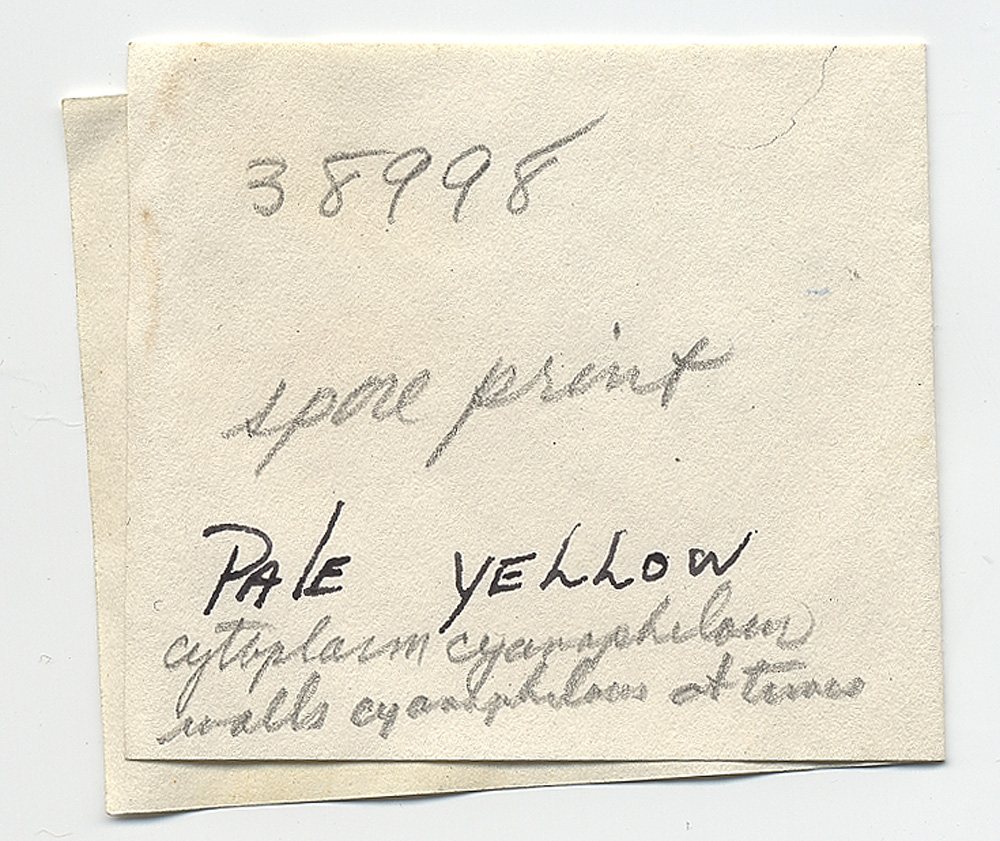 38998
spore print
PALE YELLOW
cytoplasm cyanophilous
walls cyanophilous at times